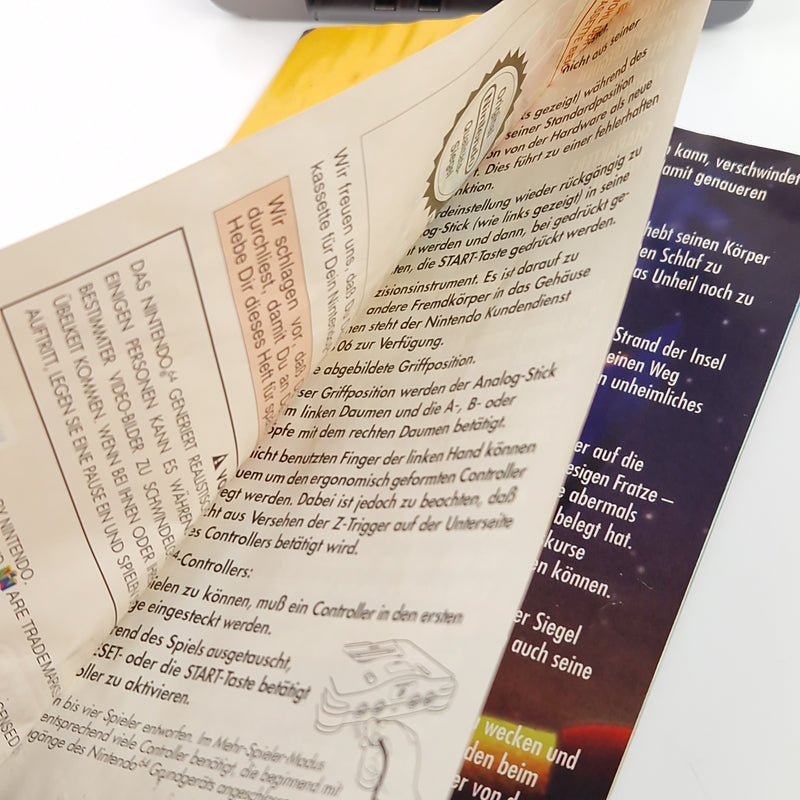 Original
Nintendo
Seal of
Wir freuen uns, daß Du
kassette für Dein Ninten
Wir schlagen vor, daß
durchliest, damit Du an
Hebe Dir dieses Heft für
DAS NINTENDO64 GENERIERT REALISTISC
EINIGEN PERSONEN KANN ES WÄHREN
BESTIMMTER VIDEO-BILDER ZU SCHWINDEL
ÜBELKEIT KOMMEN. WENN BEI IHNEN ODER
AUFTRITT, LEGEN SIE EINE PAUSE EIN UND SPIELEN
BY NINTENDO.
ARE TRADEMARKS
CENSED
nicht aus seiner
gezeigt) während des
seiner Standardposition
on von der Hardware als neue
t. Dies führt zu einer fehlerhaften
nktion.
rdeinstellung wieder rückgängig zu
og-Stick (wie links gezeigt) in seine
t werden und dann, bei gedrückt ge-
ten, die START-Taste gedrückt werden.
zisionsinstrument. Es ist darauf zu
andere Fremdkörper in das Gehäuse
en steht der Nintendo Kundendienst
06 zur Verfügung.
e abgebildete Griffposition.
ser Griffposition werden der Analog-Stick
m linken Daumen und die A-, B- oder
öpfe mit dem rechten Daumen betätigt.
nicht benutzten Finger der linken Hand können
uem um den ergonomisch geformten Controller
egt werden. Dabei ist jedoch zu beachten, daß
ht aus Versehen der Z-Trigger auf der Unterseite
es Controllers betätigt wird.
64-Controllers:
ielen zu können, muß ein Controller in den ersten
ge eingesteckt werden.
rend des Spiels ausgetauscht,
SET- oder die START-Taste betätigt
oller zu aktivieren.
n bis vier Spieler entworfen. Im Mehr-Spieler-Modus
entsprechend viele Controller benötigt, die beginnend mit
gänge des Nintendo64 Grundgeräts angeschlos
kann, verschwindet
amit genaueren
hebt seinen Körper
en Schlaf zu
as Unheil noch zu
Strand der Insel
einen Weg
n unheimliches
er auf die
esigen Fratze –
e abermals
belegt hat.
kurse
en können.
er Siegel
auch seine
wecken und
den beim
er von d